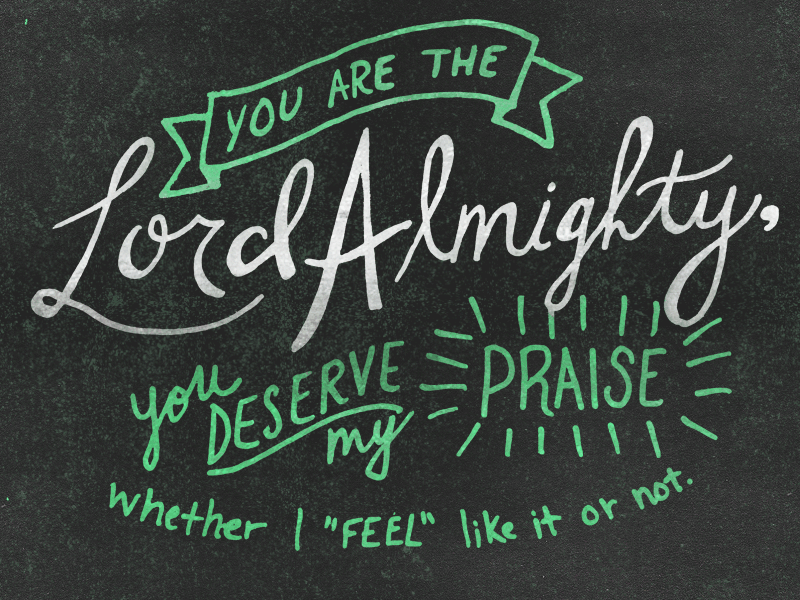 YOU ARE THE
Lord Almighty,
you DESERVE
my PRAISE
whether I "FEEL" like it or not.